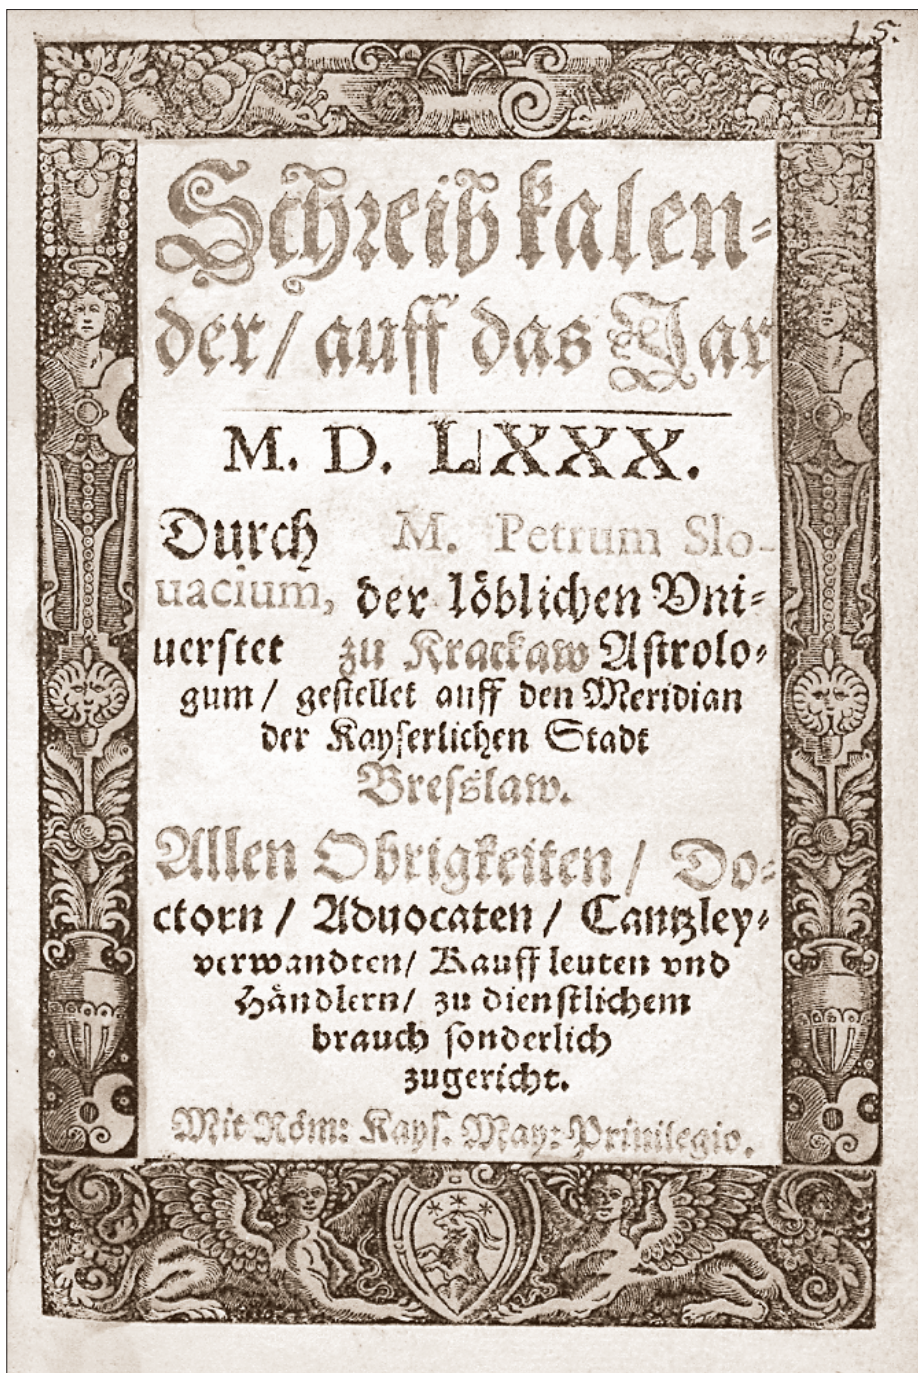 15.
Schreibkalen-
der / auff das Jar
M. D. LXXX.
Durch M. Petrum Slo-
uacium, der löblichen Vni-
uerstet zu Krackaw Astrolo-
gum / gestellet auff den Meridian
der Kayserlichen Stadt
Bresslaw.
Allen Obrigkeiten / Do-
ctorn / Aduocaten / Cantzley-
verwandten / Kauffleuten vnd
Händlern / zu dienstlichem
brauch sonderlich
zugericht.
Mit Röm: Kays. May: Priuilegio.